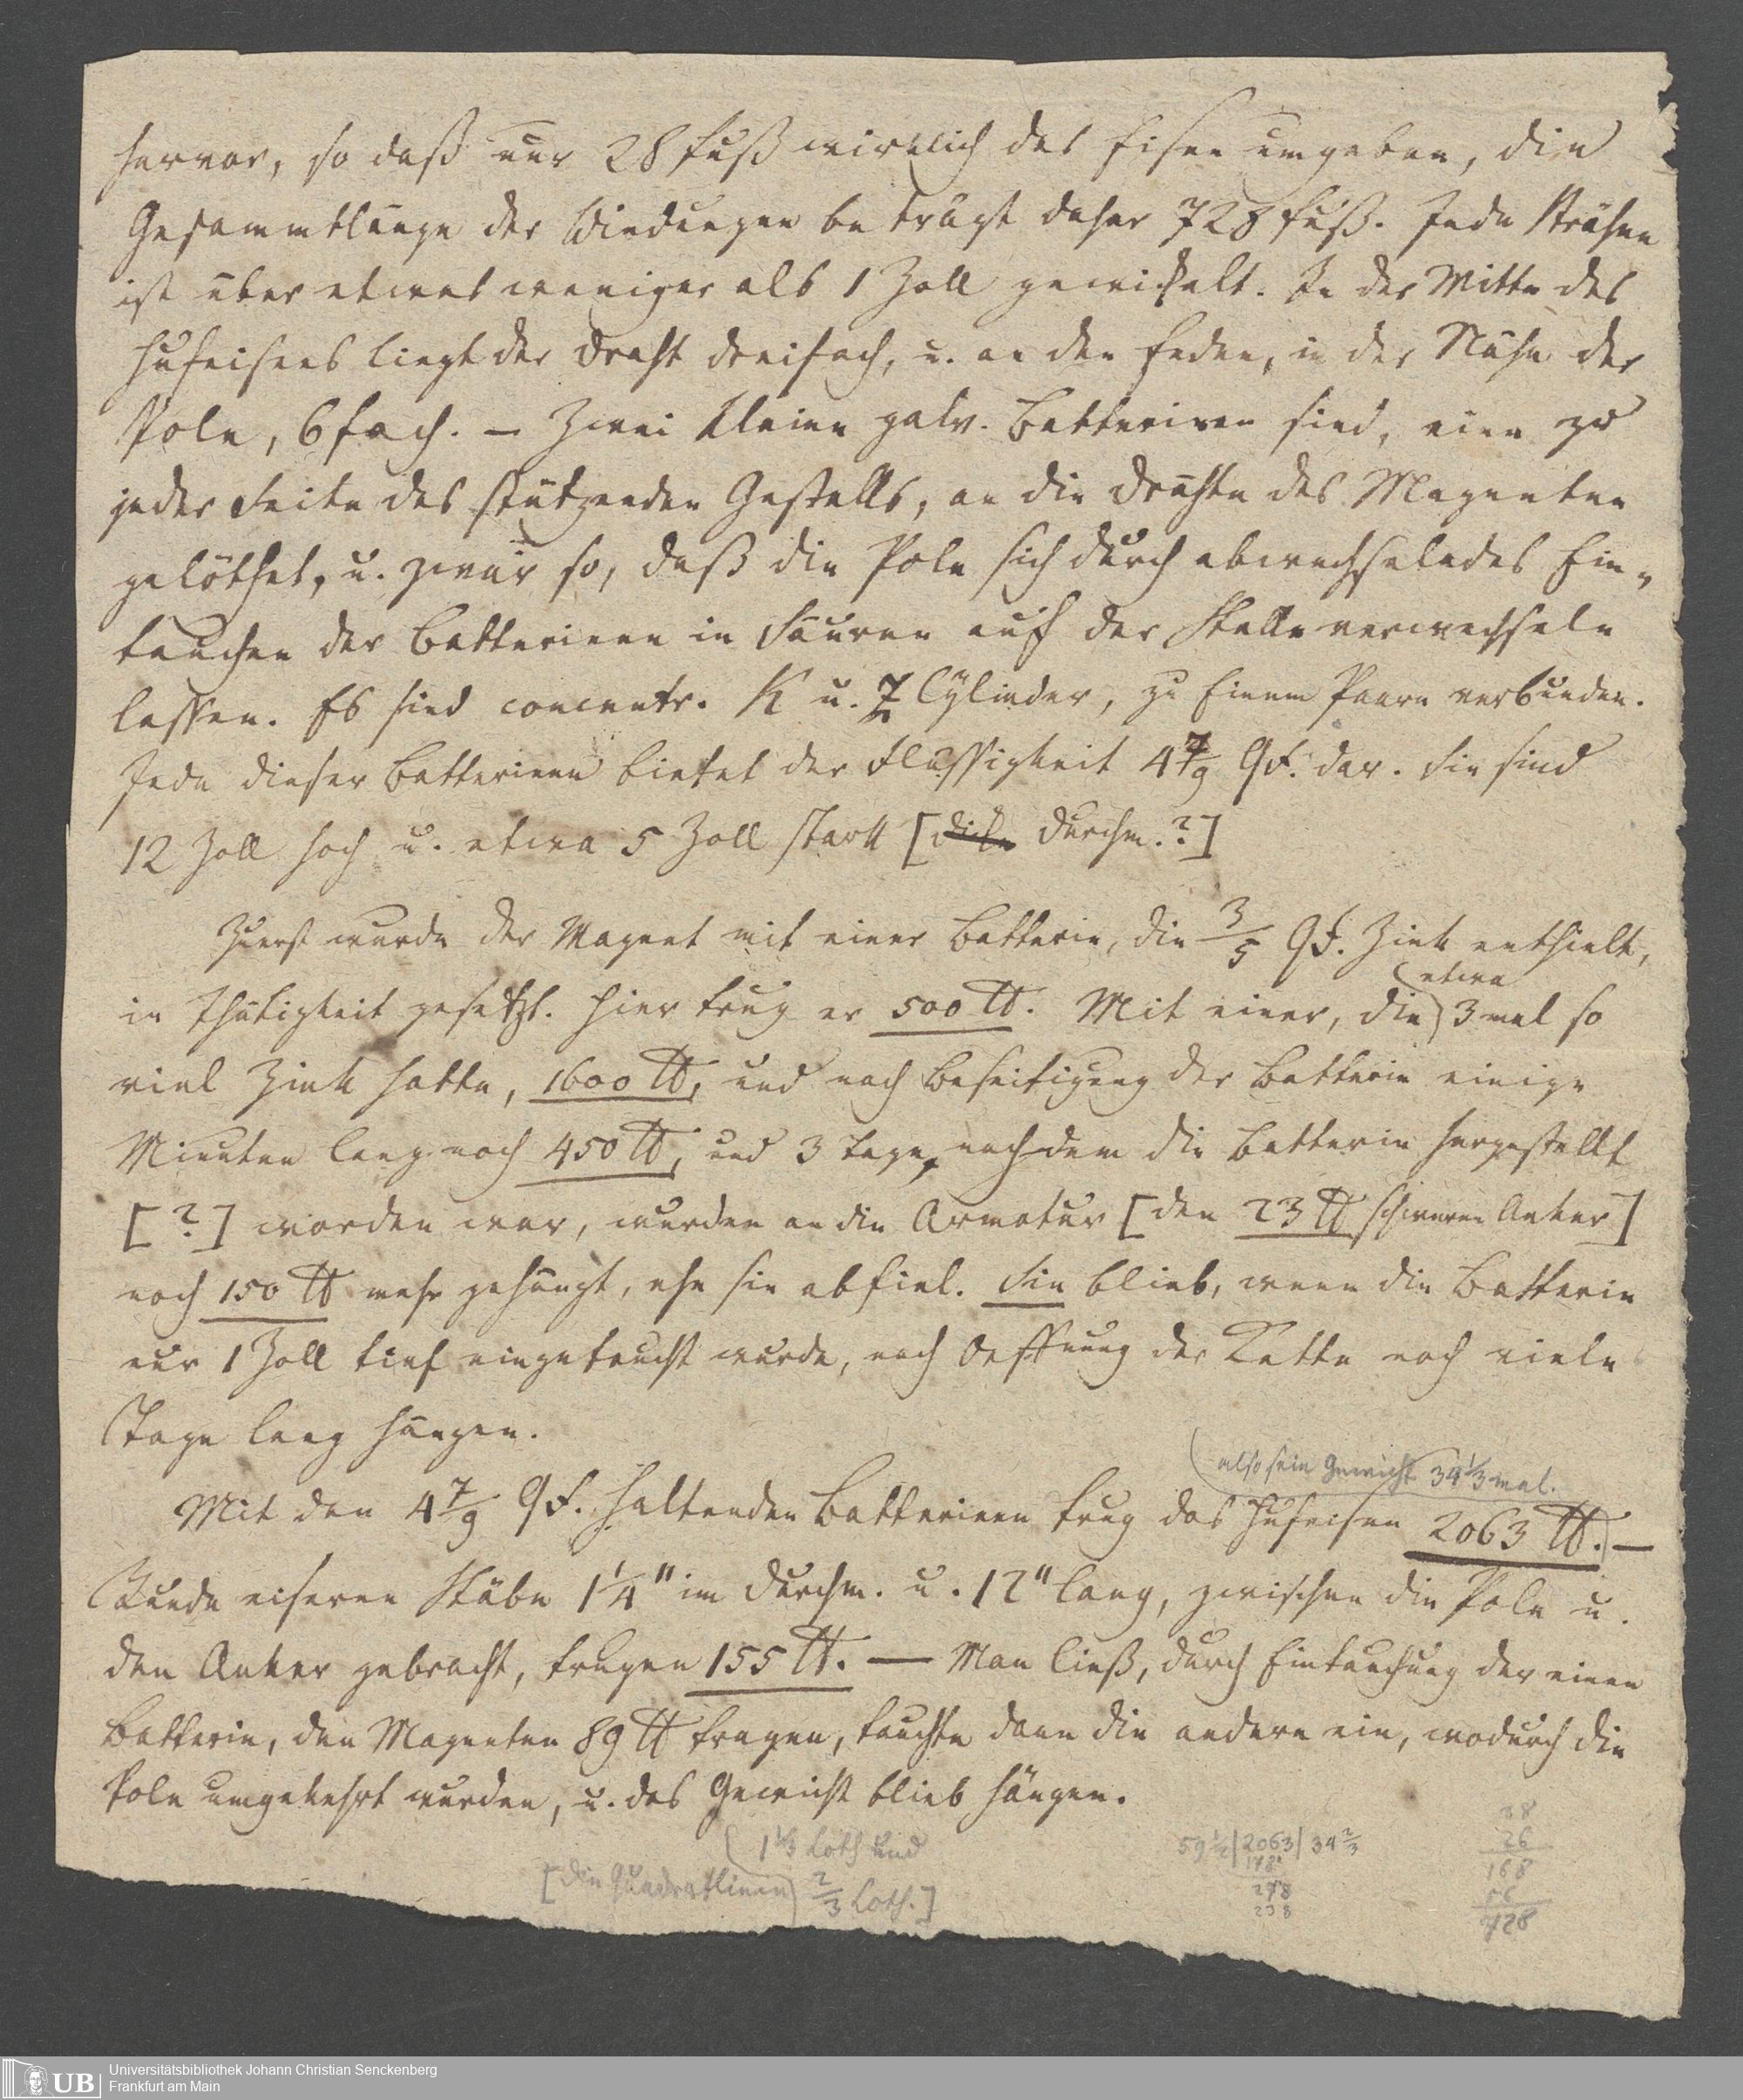 hervor, so daß nur 28 Fuß wirklich das Eisen umgeben, die
Gesammtlänge der Windungen beträgt daher 728 Fuß. Jede Strähne
ist über etwas weniger als 1 Zoll gewickelt. In der Mitte des
Hufeisens liegt der Draht dreifach, u. an den Enden, in der Nähe der
Pole, 6fach. – Zwei kleine galv. Batterieen sind, eine zu
jeder Seite des stützenden Gestells, an die Drähte des Magneten
gelöthet, u. zwar so, daß die Pole sich durch abwechselndes Ein-
tauchen der Batterieen in Säuren auf der Stelle verwechseln
lassen. Es sind concentr. K u. Z Cylinder, zu Einem Paare verbunden.
Jede dieser Batterieen bietet der Flüssigkeit 4 7/9 QF. dar. Sie sind
12 Zoll hoch u. etwa 5 Zoll stark [dicke Durchm.?]
Zuerst wurde der Magnet mit einer Batterie, die 3/5 QF. Zink enthielt,
etwa
in Thätigkeit gesetzt. Hier trug er 500 ℔. Mit einer, die 3 mal so
viel Zink hatte, 1600 ℔, und nach Beseitigung der Batterie einige
Minuten lang noch 450 ℔, und 3 Tage, nachdem die Batterie hergestellt
[?] worden war, wurden an die Armatur [den 23 ℔ schweren Anker]
noch 150 ℔ mehr gehängt, ehe sie abfiel. Sie blieb, wenn die Batterie
nur 1 Zoll tief eingetaucht wurde, nach Oeffnung der Kette noch viele
Tage lang hängen.
also sein Gewicht 34 1/3 mal.
Mit den 4 7/9 QF. haltenden Batterieen trug das Hufeisen 2063 ℔. –
Runde eiserne Stäbe 1 1/4" im Durchm. u. 12" lang, zwischen die Pole u.
den Anker gebracht, trugen 155 ℔. — Man ließ, durch Eintauchung der einen
Batterie, den Magneten 89 ℔ tragen, tauchte dann die andere ein, wodurch die
Pole umgekehrt wurden, u. das Gewicht blieb hängen.
1 1/3 Loth und
[die Quadratlinie 2/3 Loth.]
59 1/2 | 2063 | 34 2/3
178
278
238
28
26
168
56
728